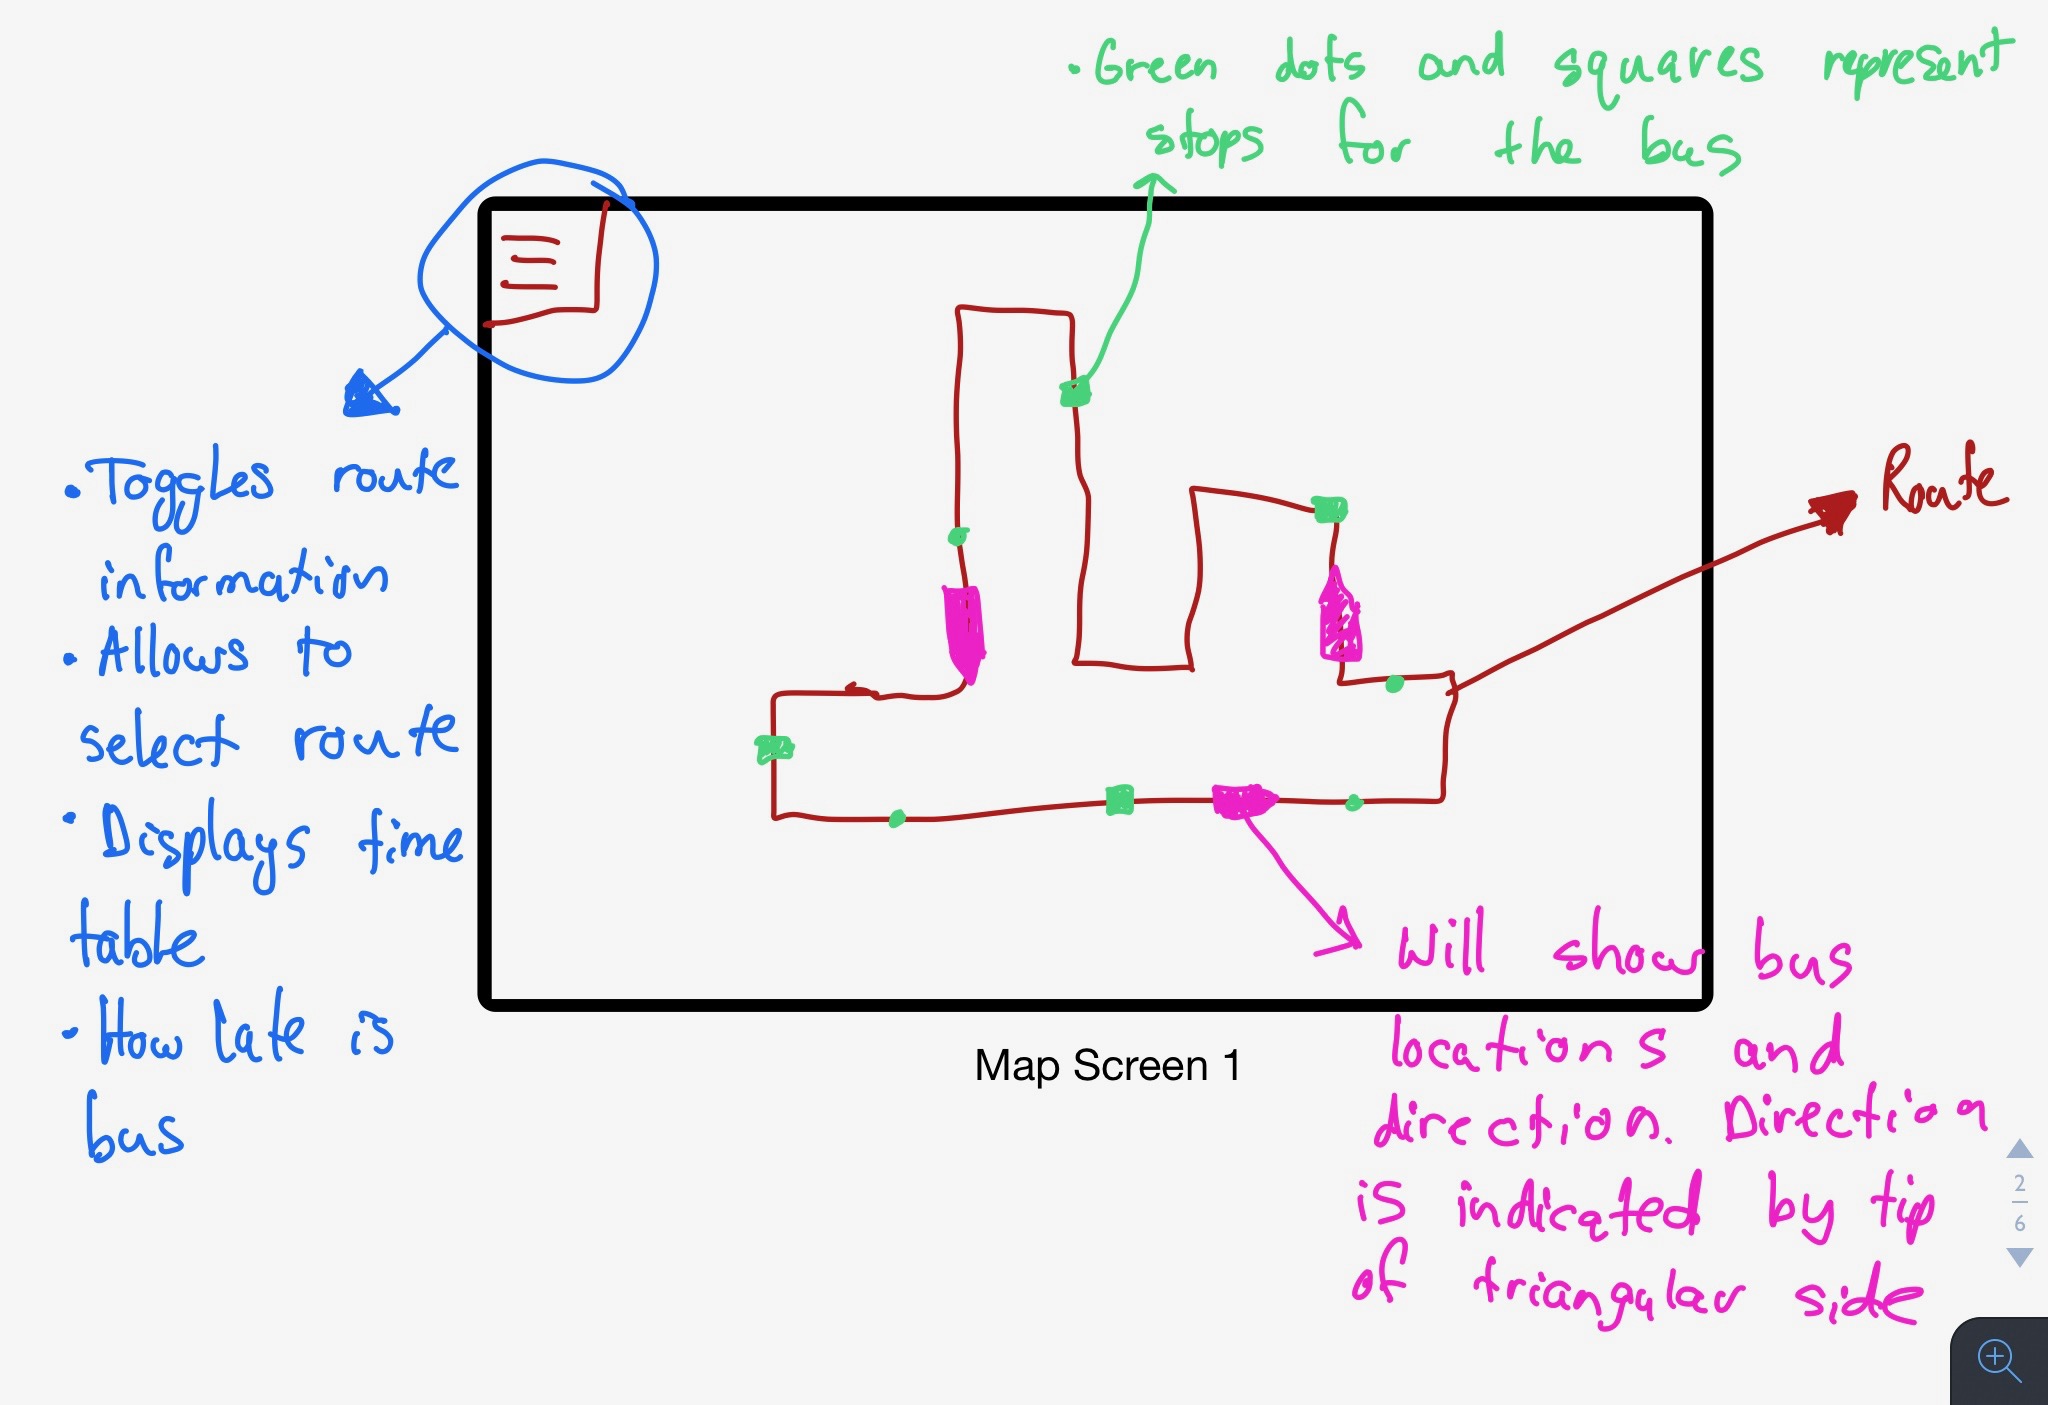 · Green dots and squares represent
stops for the bus
Route
· Toggles route
information
· Allows to
select route
· Displays time
table
· How late is
bus
Will show bus
locations and
direction. Direction
is indicated by tip
of triangular side
Map Screen 1
2
6